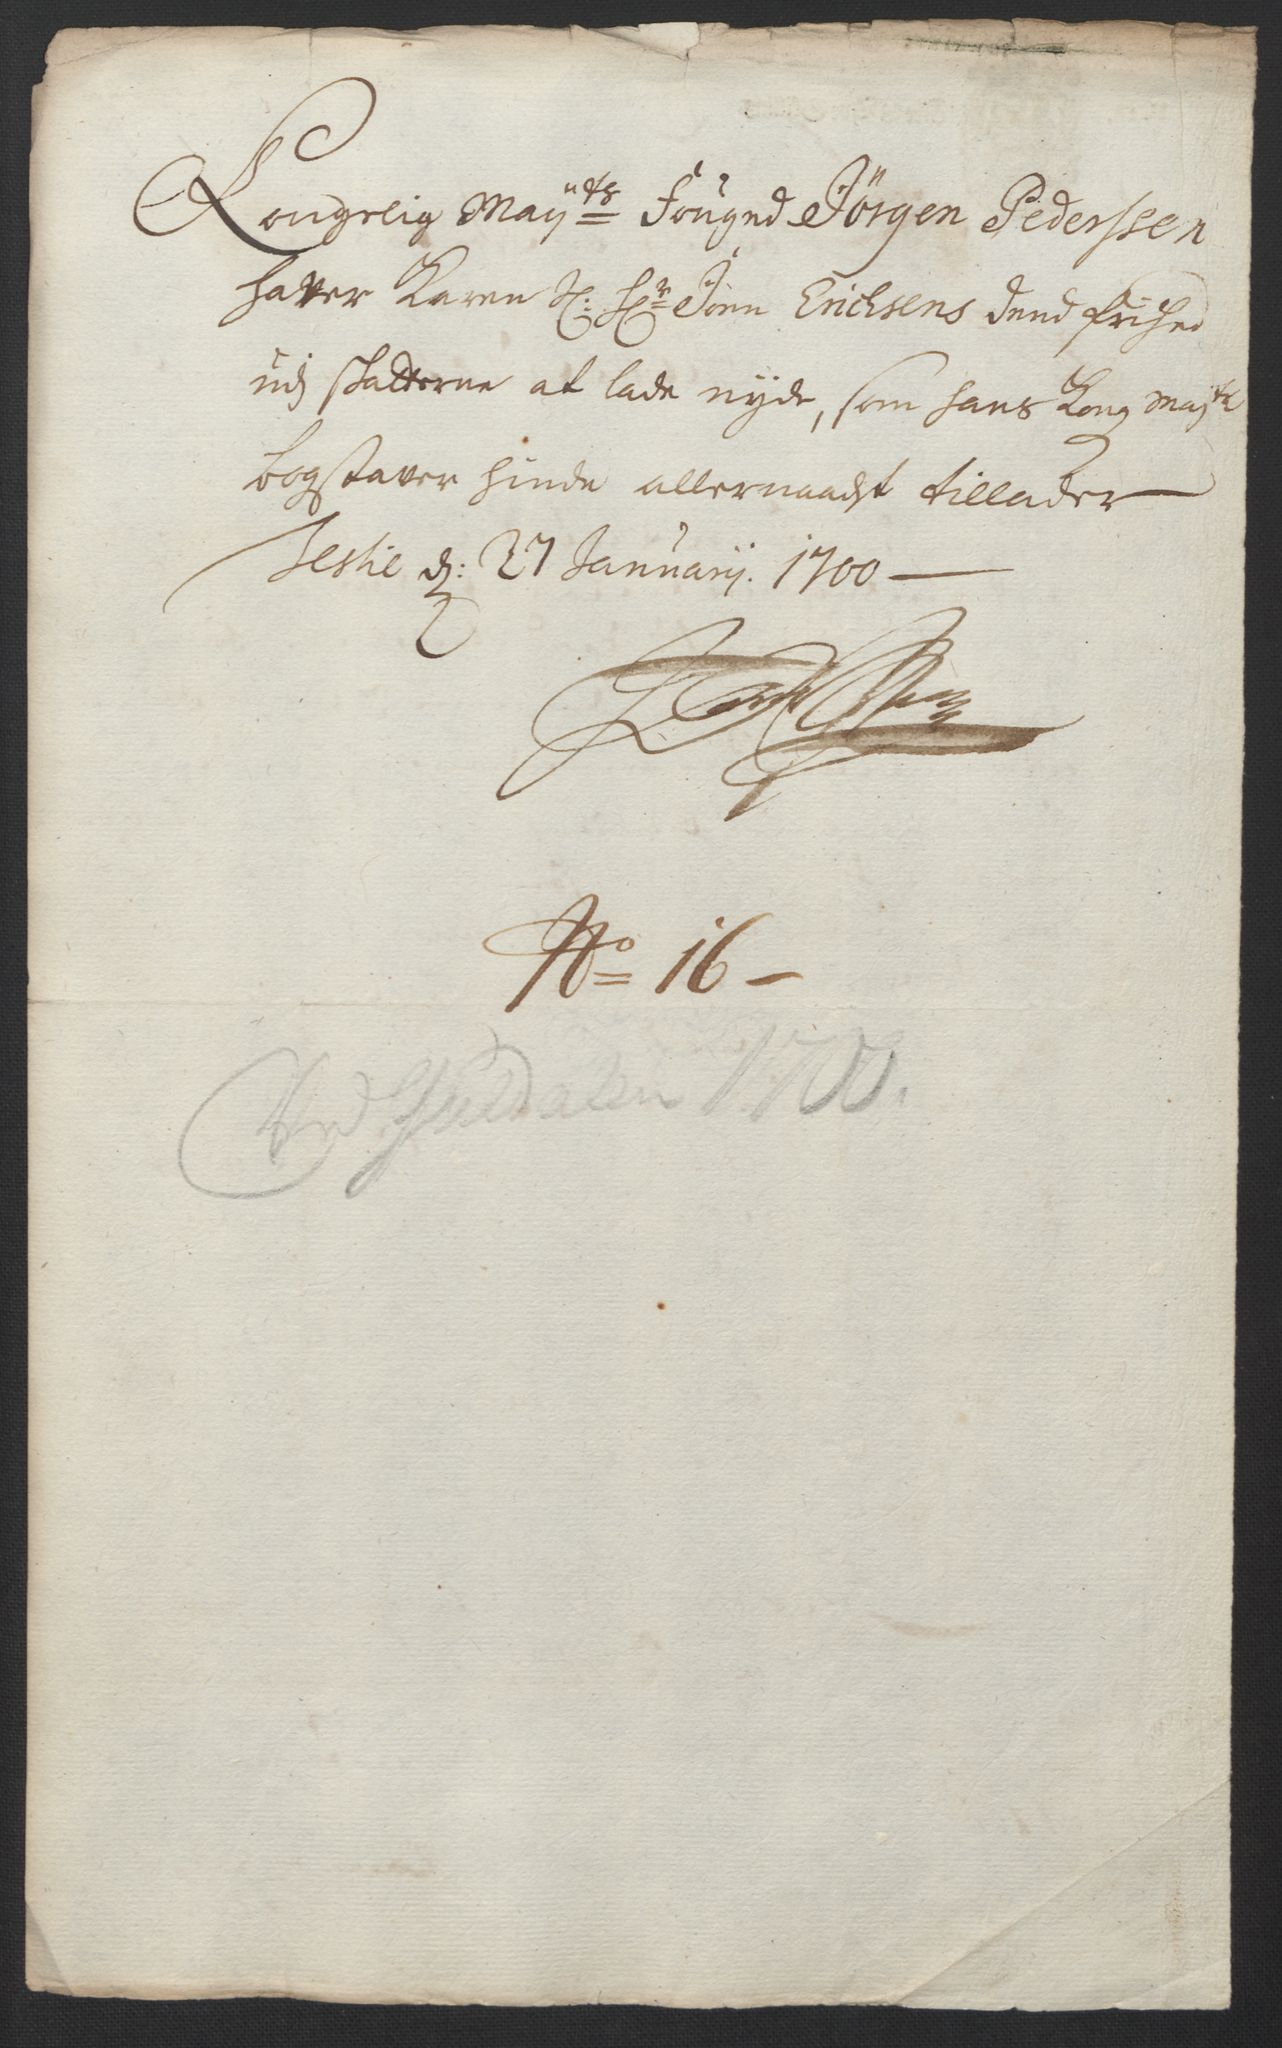 Kongelig Mayts Fouged Jörgen Pederssen
hafver Karen Sl: Hr Jöen Erichsens dend frihed
udj skatterne at lade nyde, som hans Kong Mayts
bogstaver hinde allernaadgst tillader
Leskie d: 27 Januarij. 1700
No 16
1700.